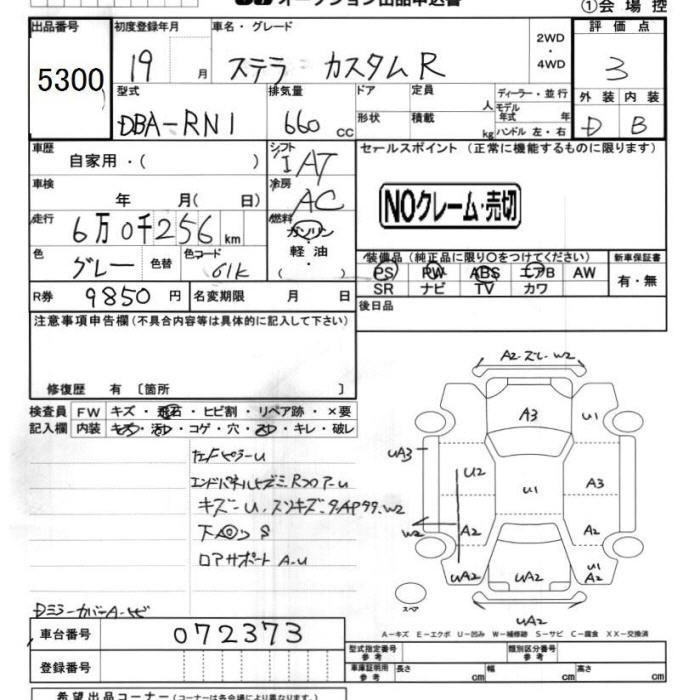 オークション出品申込書
①会場控
出品番号
5300
初度登録年月
19 月
車名・グレード
ステラ カスタムR
2WD
4WD
評価点
3
型式
DBA-RN1
排気量
660 cc
ドア
形状
定員 人
積載 kg
ディーラー・並行
モデル年式 年
ハンドル 左・右
外装 内装
D B
車歴
自家用・( )
シフト
IAT
セールスポイント (正常に機能するものに限ります)
NOクレーム・売切
車検
年 月( 日)
冷房
AC
走行
6万0千256 km
燃料
ガソリン
軽油
( ・ )
色
グレー
色替
色コード
61K
装備品 (純正品に限り○をつけてください)
新車保証書
PS PW ABS エアB AW
SR ナビ TV カワ
有・無
R券 9850 円
名変期限 月 日
後日品
注意事項申告欄 (不具合内容等は具体的に記入して下さい)
修復歴 有 〔箇所 〕
検査員記入欄
FW キズ・飛石・ヒビ割・リペア跡・×要
内装 キズ・コゲ・穴・キレ・破レ
左Fピラーu
キズ-u.スリキズ.
下 S
ロアサポートA-u
A2.ズレ.W2
A3
u1
uA3
u2
u1
A3
W2
A2
A2
uA2
uA2
u1
A2
スペア
uA2
A-キズ E-エクボ U-凹み W-補修跡 S-サビ C-腐食 XX-交換済
車台番号
072373
登録番号
型式指定番号 参考
類別区分番号 参考
車庫証明用 参考
長さ cm
幅 cm
高さ cm
希望出品コーナー (コーナーは各会場により異なります。)